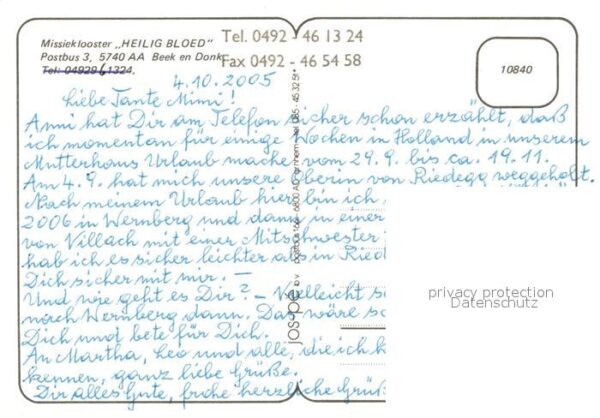 Missieklooster „HEILIG BLOED"
Postbus 3, 5740 AA Beek en Donk
Tel. 04929-1324.
Tel. 0492 - 46 13 24
Fax 0492 - 46 54 58
10840
4.10.2005
Liebe Tante Mimi!
Anni hat Dir am Telefon sicher schon erzählt, daß
ich momentan für einige Wochen in Holland in unserem
Mutterhaus Urlaub mache vom 29.9. bis ca. 19.11.
Am 4.9. hat mich unsere Oberin von Riedegg weggeholt.
Nach meinem Urlaub hier bin ich
2006 in Wernberg und dann in einer
von Villach mit einer Mitschwester
hab ich es sicher leichter als in Ried
Dich sicher mit mir. —
Und wie geht es Dir? – Vielleicht
nach Wernberg dann. Das wäre
Dich und bete für Dich.
An Martha, Leo und alle, die ich
kennen, ganz liebe Grüße.
Dir alles Gute, frohe herzliche Grüße
jos-pé b.v. postbus
privacy protection
Datenschutz